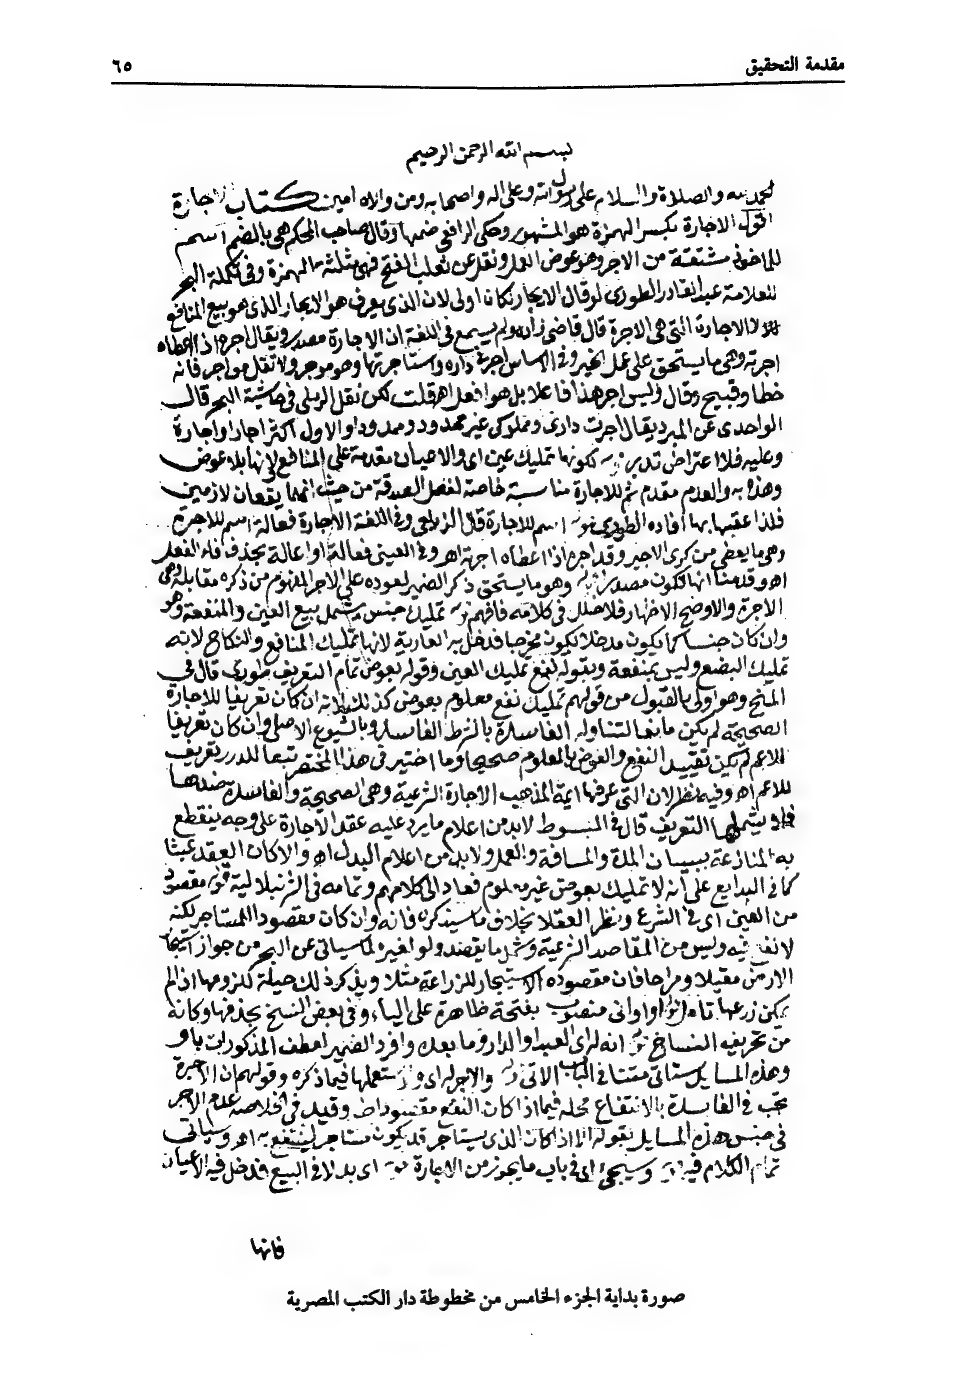 مقدمة التحقيق ٦٥
بسم الله الرحمن الرحيم
الحمد لله والصلاة والسلام على رسول الله وعلى اله واصحابه ومن والاه امين كتاب الاجارة
اقول الاجارة بكسر الهمزة هو المشهور وحكى الرافعي ضمها وقال صاحب المحكم هي بالضم اسم
للماخوذ مشتقة من الاجر وهو عوض العمل ونقل عن ثعلب الفتح فهي مثلثة الهمزة وفي تكملة البحر
للعلامة عبد القادر الطوري لو قال الايجار لكان اولى لان الذي يعرف هو الايجار الذي هو بيع المنافع
لا الاجارة التي هي الاجرة قال قاضي زاده ولم يسمع في اللغة ان الاجارة مصدر ويقال اجره اذا اعطاه
اجرته وهي ما يستحق على عمل الخير وفي الاساس اجرني داره واستاجرتها وهو موجر ولا تقل مواجر فانه
خطا وقبيح وقال وليس اجر هذا فاعلا بل هو افعل اه قلت لكن نقل الرملي في حاشية البحر قال
الواحدي عن المبرد يقال اجرت داري ومملوكي غير ممدود وممدودا والاول اكثر اجارا واجارة
وعليه فلا اعتراض تدبر لكونها تمليك عين اي والاعيان مقدمة على المنافع لانها بلا عوض
وهذه به والعدم مقدم ثم للاجارة مناسبة خاصة لفصل الصدقة من حيث انهما يقعان لازمين
فلذا عقبها بها افاده الطوري اسم للاجارة قال الزيلعي وفي اللغة الاجارة فعالة اسم للاجرة
وهي ما يعطى من كرى الاجير وقد اجره اذا اعطاه اجرته اه وفي العيني فعالة او اعالة بحذف فاء الفعل
اه وقدمنا انها تكون مصدرا وهو ما يستحق ذكر الضمير لعوده على الاجر المفهوم من ذكره مقابله وهي
الاجرة والاوضح الاظهار فلا خلل في كلامه فافهم تمليك جنس يشمل بيع العين والمنفعة وهو
وان كان جنسا كما يكون مدخلا يكون مخرجا فدخل به العارية لانها تمليك المنافع والنكاح لانه
تمليك البضع وليس بمنفعة وبقوله نفع تمليك العين وقوله بعوض تمام التعريف طوري قال في
المنح وهو اولى بالقبول من قولهم تمليك نفع معلوم بعوض كذلك لانه ان كان تعريفا للاجارة
الصحيحة لم يكن مانعا لتناوله الفاسدة بالشرط الفاسد وبالشيوع الاصلي وان كان تعريفا
للاعم لم يكن تقييد النفع والعوض بالمعلوم صحيحا وما اختير في هذا المختصر تبعا للدرر تعريف
للاعم اه وفيه نظر لان التي عرفها ايمة المذهب الاجارة الشرعية وهي الصحيحة والفاسدة ضدها
فلا يشملها التعريف قال في المبسوط لابد من اعلام ما يرد عليه عقد الاجارة على وجه ينقطع
به المنازعة ببيان المدة والمسافة والعمل ولابد من اعلام البدل اه والا كان العقد عبثا
كما في البدايع على انه لا تمليك بعوض غير معلوم فعاد الى كلامهم وتمامه في الشرنبلالية مقصود
من العين اي في الشرع ونظر العقلا بخلاف ما سيذكره فانه وان كان مقصودا للمستاجر لكنه
لا نفع فيه وليس من المقاصد الشرعية وشمل ما يقصد ولو لغيره لما سياتي عن البحر من جواز استيجار
الارض مقيلا ومراحا فان مقصوده الاستيجار للزراعة مثلا ويذكر ذلك حيلة للزومها اذا لم
يمكن زرعها تامل او اواني منصوب بفتحة ظاهرة على الياء وفي بعض النسخ بحذفها وكانه
من تحريف النساخ انه له اي العبد او الدار وما بعده وافرد الضمير لعطف المذكورات باو
وهذه المسايل ستاتي متنا في الباب الاتي والاجر له اي ولا يستعملها فيما ذكره وقولهم ان الاجرة
تجب في الفاسدة بالانتفاع محله فيما اذا كان النفع مقصودا ط وقيد في الخلاصة عدم الاجر
في جنس هذه المسايل بقوله الا اذا كان الذي يستاجر قد يكون مستاجر لينتفع به اه وسياتي
تمام الكلام فيه وسيجيء اي في باب ما يجوز من الاجارة اي بدلا في البيع فدخل فيه الاعيان
فانها
صورة بداية الجزء الخامس من مخطوطة دار الكتب المصرية